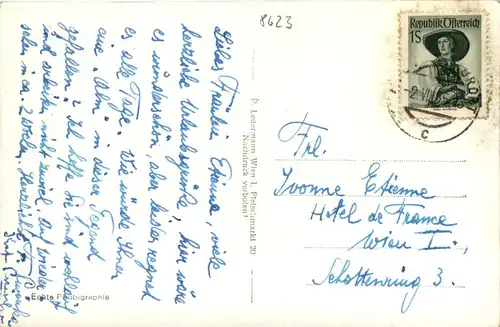 8623
Republik Österreich
1S
Liebes Fräulein Etienne, viele
herzliche Urlaubsgrüße, hier wäre
es wunderschön, aber leider regnet
es alle Tage. Wie würde Ihnen
eine "Alm" in dieser Gegend
gefallen? Ich hoffe Sie sind wohlauf
und arbeiten nicht zuviel. Auf wieder-
sehen in ca. 2 Wochen, Herzlichst
P. Ledermann Wien I, Fleischmarkt 20
Nachdruck verboten!
Frl.
Yvonne Etienne
Hotel de France
Wien I.,
Schottenring 3.
Echte Photographie